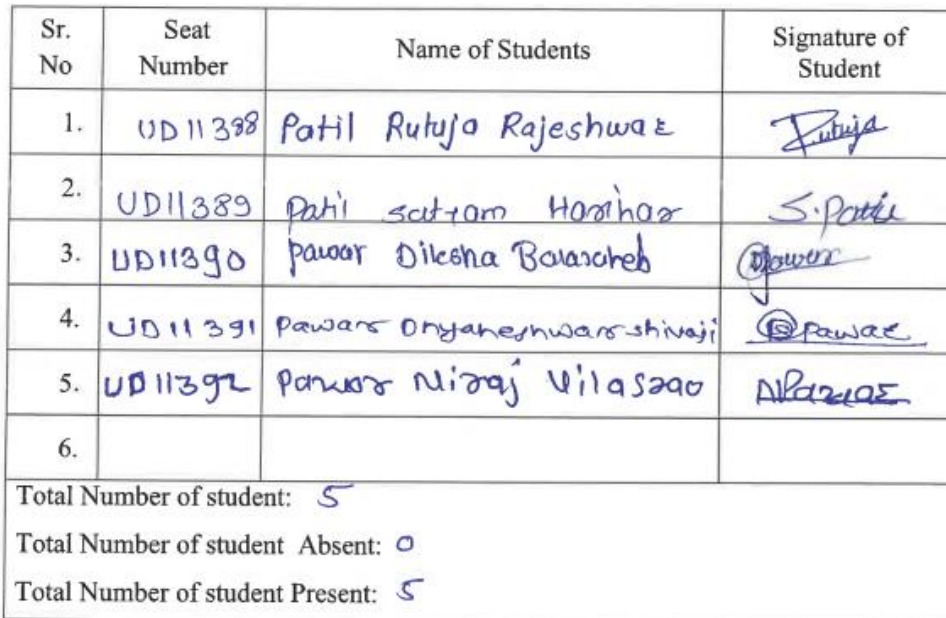 Sr. No Seat Number Name of Students Signature of Student
1. UD11388 Patil Rutuja Rajeshwar Rutuja
2. UD11389 Patil satyam Harihar S.Patil
3. UD11390 pawar Diksha Balasaheb
4. UD11391 pawar Dnyaneshwar shivaji Pawar
5. UD11392 pawar Niraj Vilasrao NPawar
6.
Total Number of student: 5
Total Number of student Absent: 0
Total Number of student Present: 5